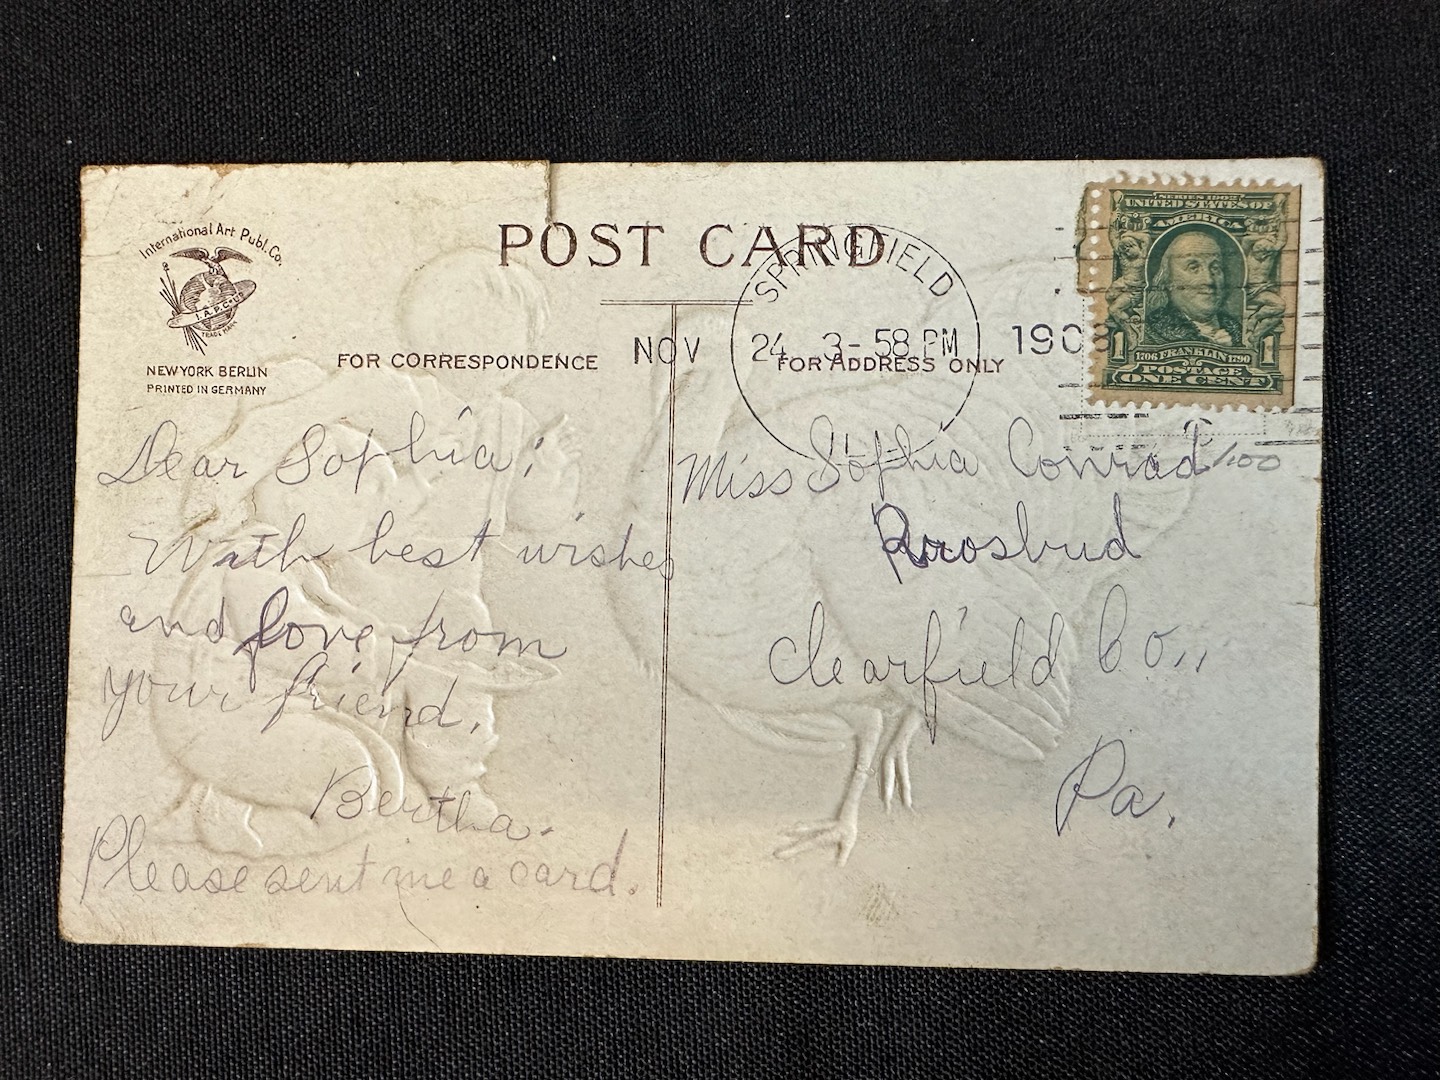 International Art Publ. Co.
I.A.P.C.
TRADE MARK
NEW YORK BERLIN
PRINTED IN GERMANY
POST CARD
FOR CORRESPONDENCE
FOR ADDRESS ONLY
SPRINGFIELD
NOV 24 3-58 PM 1908
SERIES 1902
UNITED STATES OF
AMERICA
1706 FRANKLIN 1790
1 1
POSTAGE
ONE CENT
Dear Sophia;
With best wishes
and love from
your friend,
Bertha.
Please sent me a card.
Miss Sophia Conrad
Rrosbud
Clearfield Co.,,
Pa.